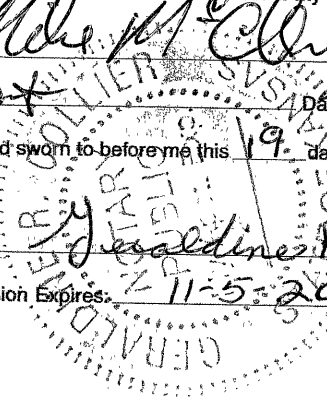 Mike Mc
Da
d sworn to before me this 19 da
Geraldine
ion Expires: 11-5-20
GERALDINE R. COLLIER
NOTARY
PUBLIC